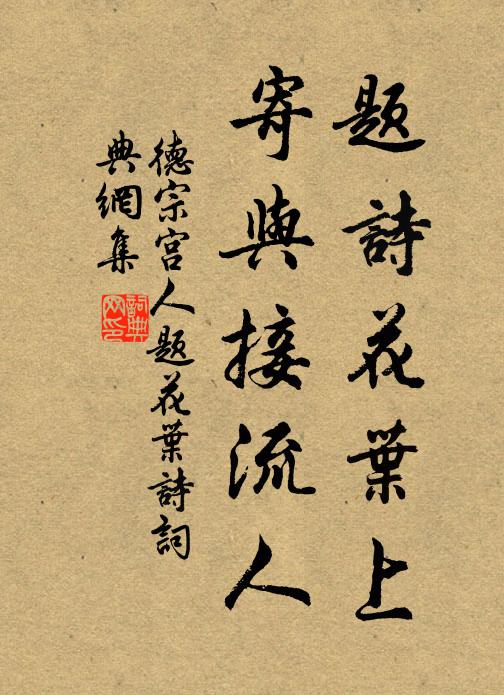 題詩花葉上
寄與接流人
德宗宮人題花葉詩詞
典網集
詞典
网印